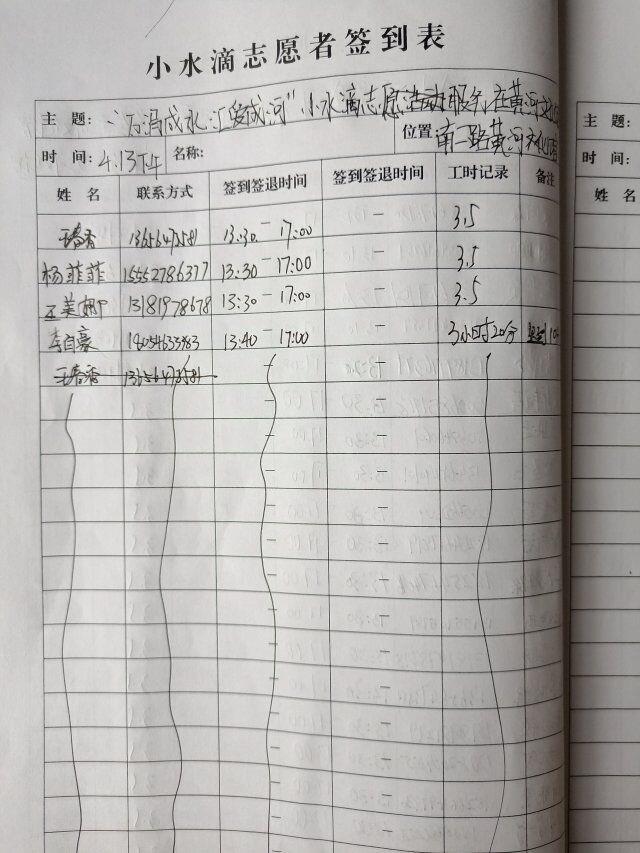 小水滴志愿者签到表
主 题: “百涓成水·汇爱成河”小水滴志愿活动服务,在黄河文化 主 题:
位置: 南一路黄河文化
时 间: 4.13下午 名称: 时 间:
姓 名 联系方式 签到签退时间 签到签退时间 工时记录 备注 姓 名
王春香 13656472581 13:30 - 17:00 - 3.5
杨菲菲 15552786377 13:30 - 17:00 - 3.5
王美娜 13181978678 13:30 - 17:00 - 3.5
李自豪 13:40 - 17:00 - 3小时20分
王春香